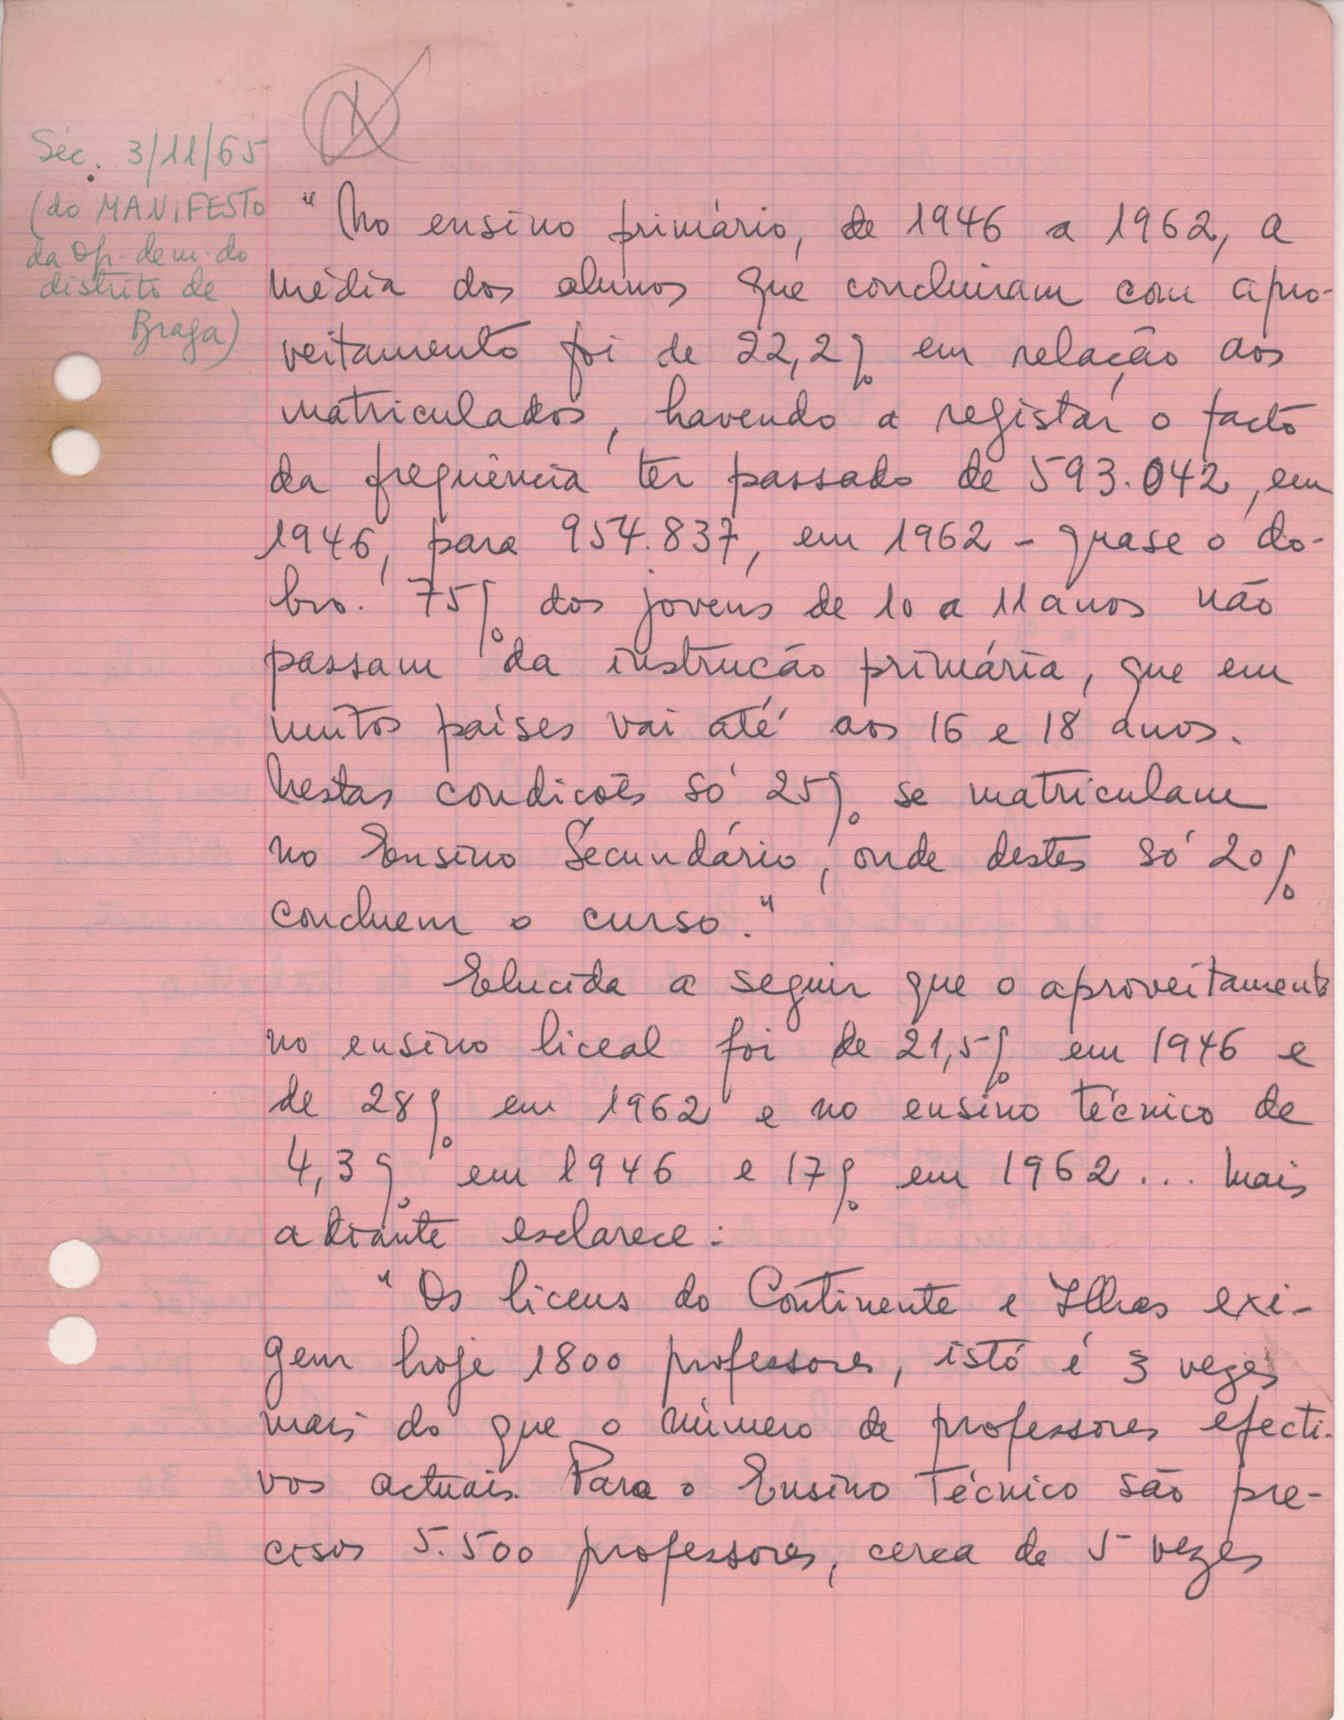 Séc. 3/11/65
(do MANIFESTO
da Op. dem. do
distrito de
Braga)
"No ensino primário, de 1946 a 1962, a
média dos alunos que concluiram com apro-
veitamento foi de 22,2% em relação aos
matriculados, havendo a registar o facto
da frequência ter passado de 593.042, em
1946, para 954.837, em 1962 - quase o do-
bro. 75% dos jovens de 10 a 11 anos não
passam da instrução primária, que em
muitos países vai até aos 16 e 18 anos.
Nestas condições só 25% se matriculam
no Ensino Secundário, onde destes só 20%
concluem o curso."
Elucida a seguir que o aproveitamento
no ensino liceal foi de 21,5% em 1946 e
de 28% em 1962 e no ensino técnico de
4,3% em 1946 e 17% em 1962... Mais
adiante esclarece:
"Os liceus do Continente e Ilhas exi-
gem hoje 1800 professores, isto é 3 vezes
mais do que o número de professores efecti-
vos actuais. Para o Ensino Técnico são pre-
cisos 5.500 professores, cerca de 5 vezes